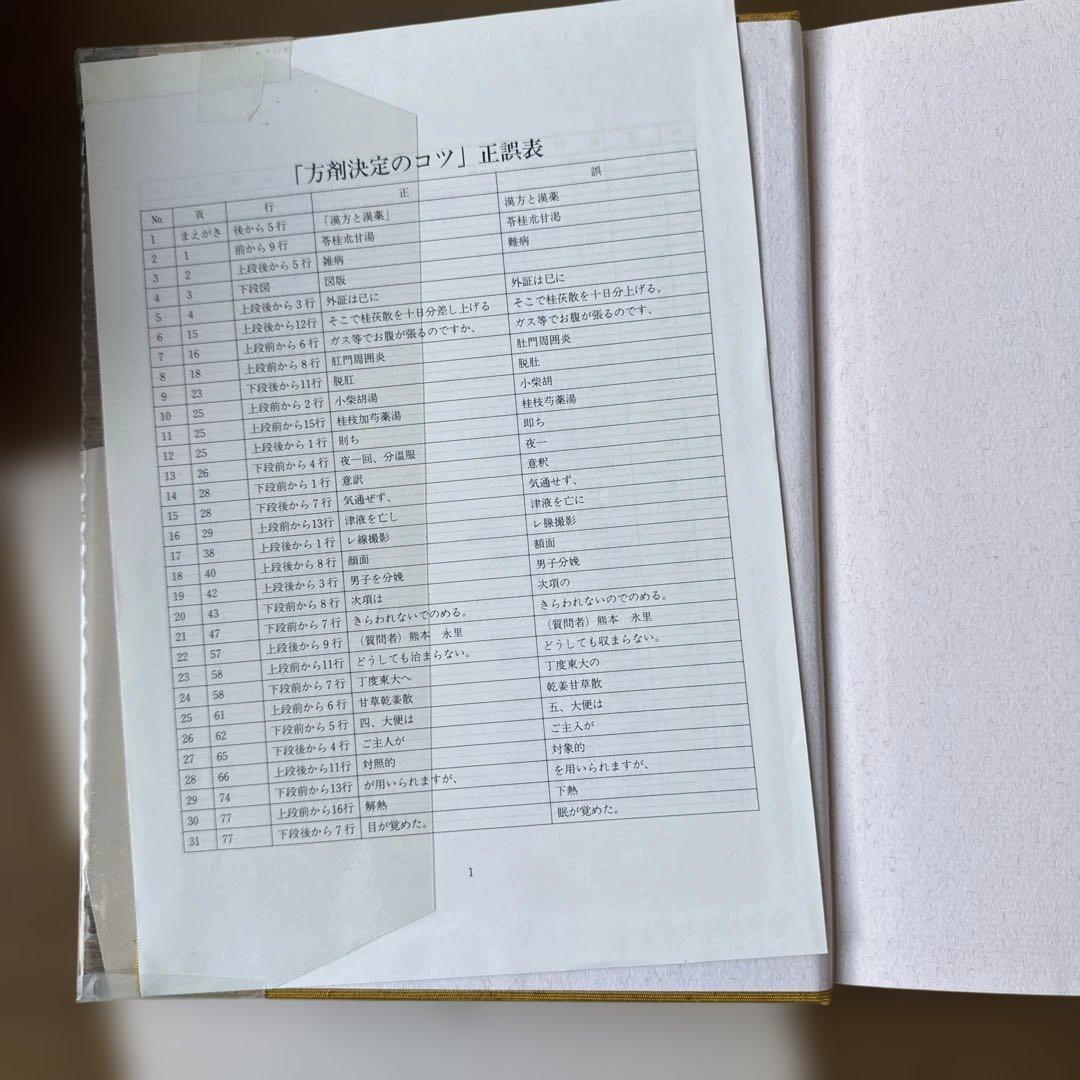 「方剤決定のコツ」正誤表
No. 頁 行 正 誤
1 まえがき 後から5行 「漢方と漢薬」 漢方と漢薬
2 1 前から9行 苓桂朮甘湯 苓桂朮甘渇
3 2 上段後から5行 雑病 難病
4 3 下段図 図版
5 4 上段後から3行 外証は已に 外証は巳に
6 15 上段後から12行 そこで桂茯散を十日分差し上げる そこで桂茯散を十日分上げる。
7 16 上段前から6行 ガス等でお腹が張るのですか、 ガス等でお腹が張るのです、
8 18 上段前から8行 肛門周囲炎 肚門周囲炎
9 23 下段後から11行 脱肛 脱肚
10 25 上段前から2行 小柴胡湯 小柴胡
11 25 上段前から15行 桂枝加芍薬湯 桂枝芍薬湯
12 25 上段後から1行 則ち 即ち
13 26 下段前から4行 夜一回、分温服 夜一
14 28 下段前から1行 意訳 意釈
15 28 下段後から7行 気通ぜず、 気通せず、
16 29 上段前から13行 津液を亡し 津液を亡に
17 38 上段後から1行 レ線撮影 レ腺撮影
18 40 上段後から8行 顔面 額面
19 42 上段後から3行 男子を分娩 男子分娩
20 43 下段前から8行 次項は 次項の
21 47 下段前から7行 きらわれないでのめる。 きらわれないのでのめる。
22 57 上段後から9行 （質問者）熊本 永里 （質問者）熊本 氷里
23 58 上段前から11行 どうしても治まらない。 どうしても収まらない。
24 58 下段前から7行 丁度東大へ 丁度東大の
25 61 上段前から6行 甘草乾姜散 乾姜甘草散
26 62 下段前から5行 四、大便は 五、大便は
27 65 下段後から4行 ご主人が ご主入が
28 66 上段後から11行 対照的 対象的
29 74 下段前から13行 が用いられますが、 を用いられますが、
30 77 上段前から16行 解熱 下熱
31 77 下段後から7行 目が覚めた。 眠が覚めた。
1